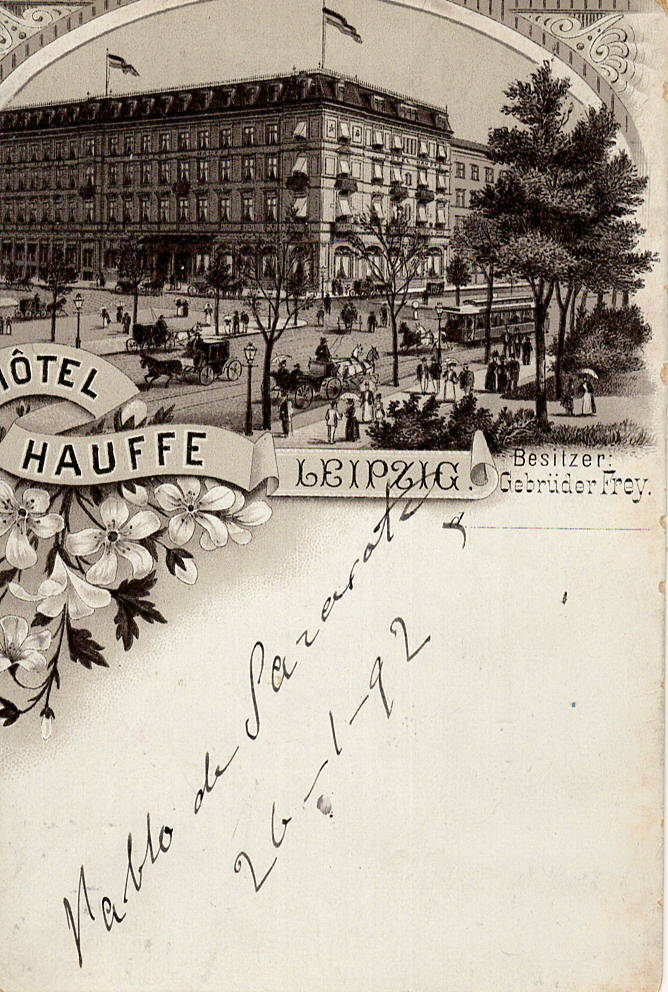 HÔTEL
HAUFFE
LEIPZIG.
Besitzer:
Gebrüder Frey.
Pablo de Sarasate
26-1-92